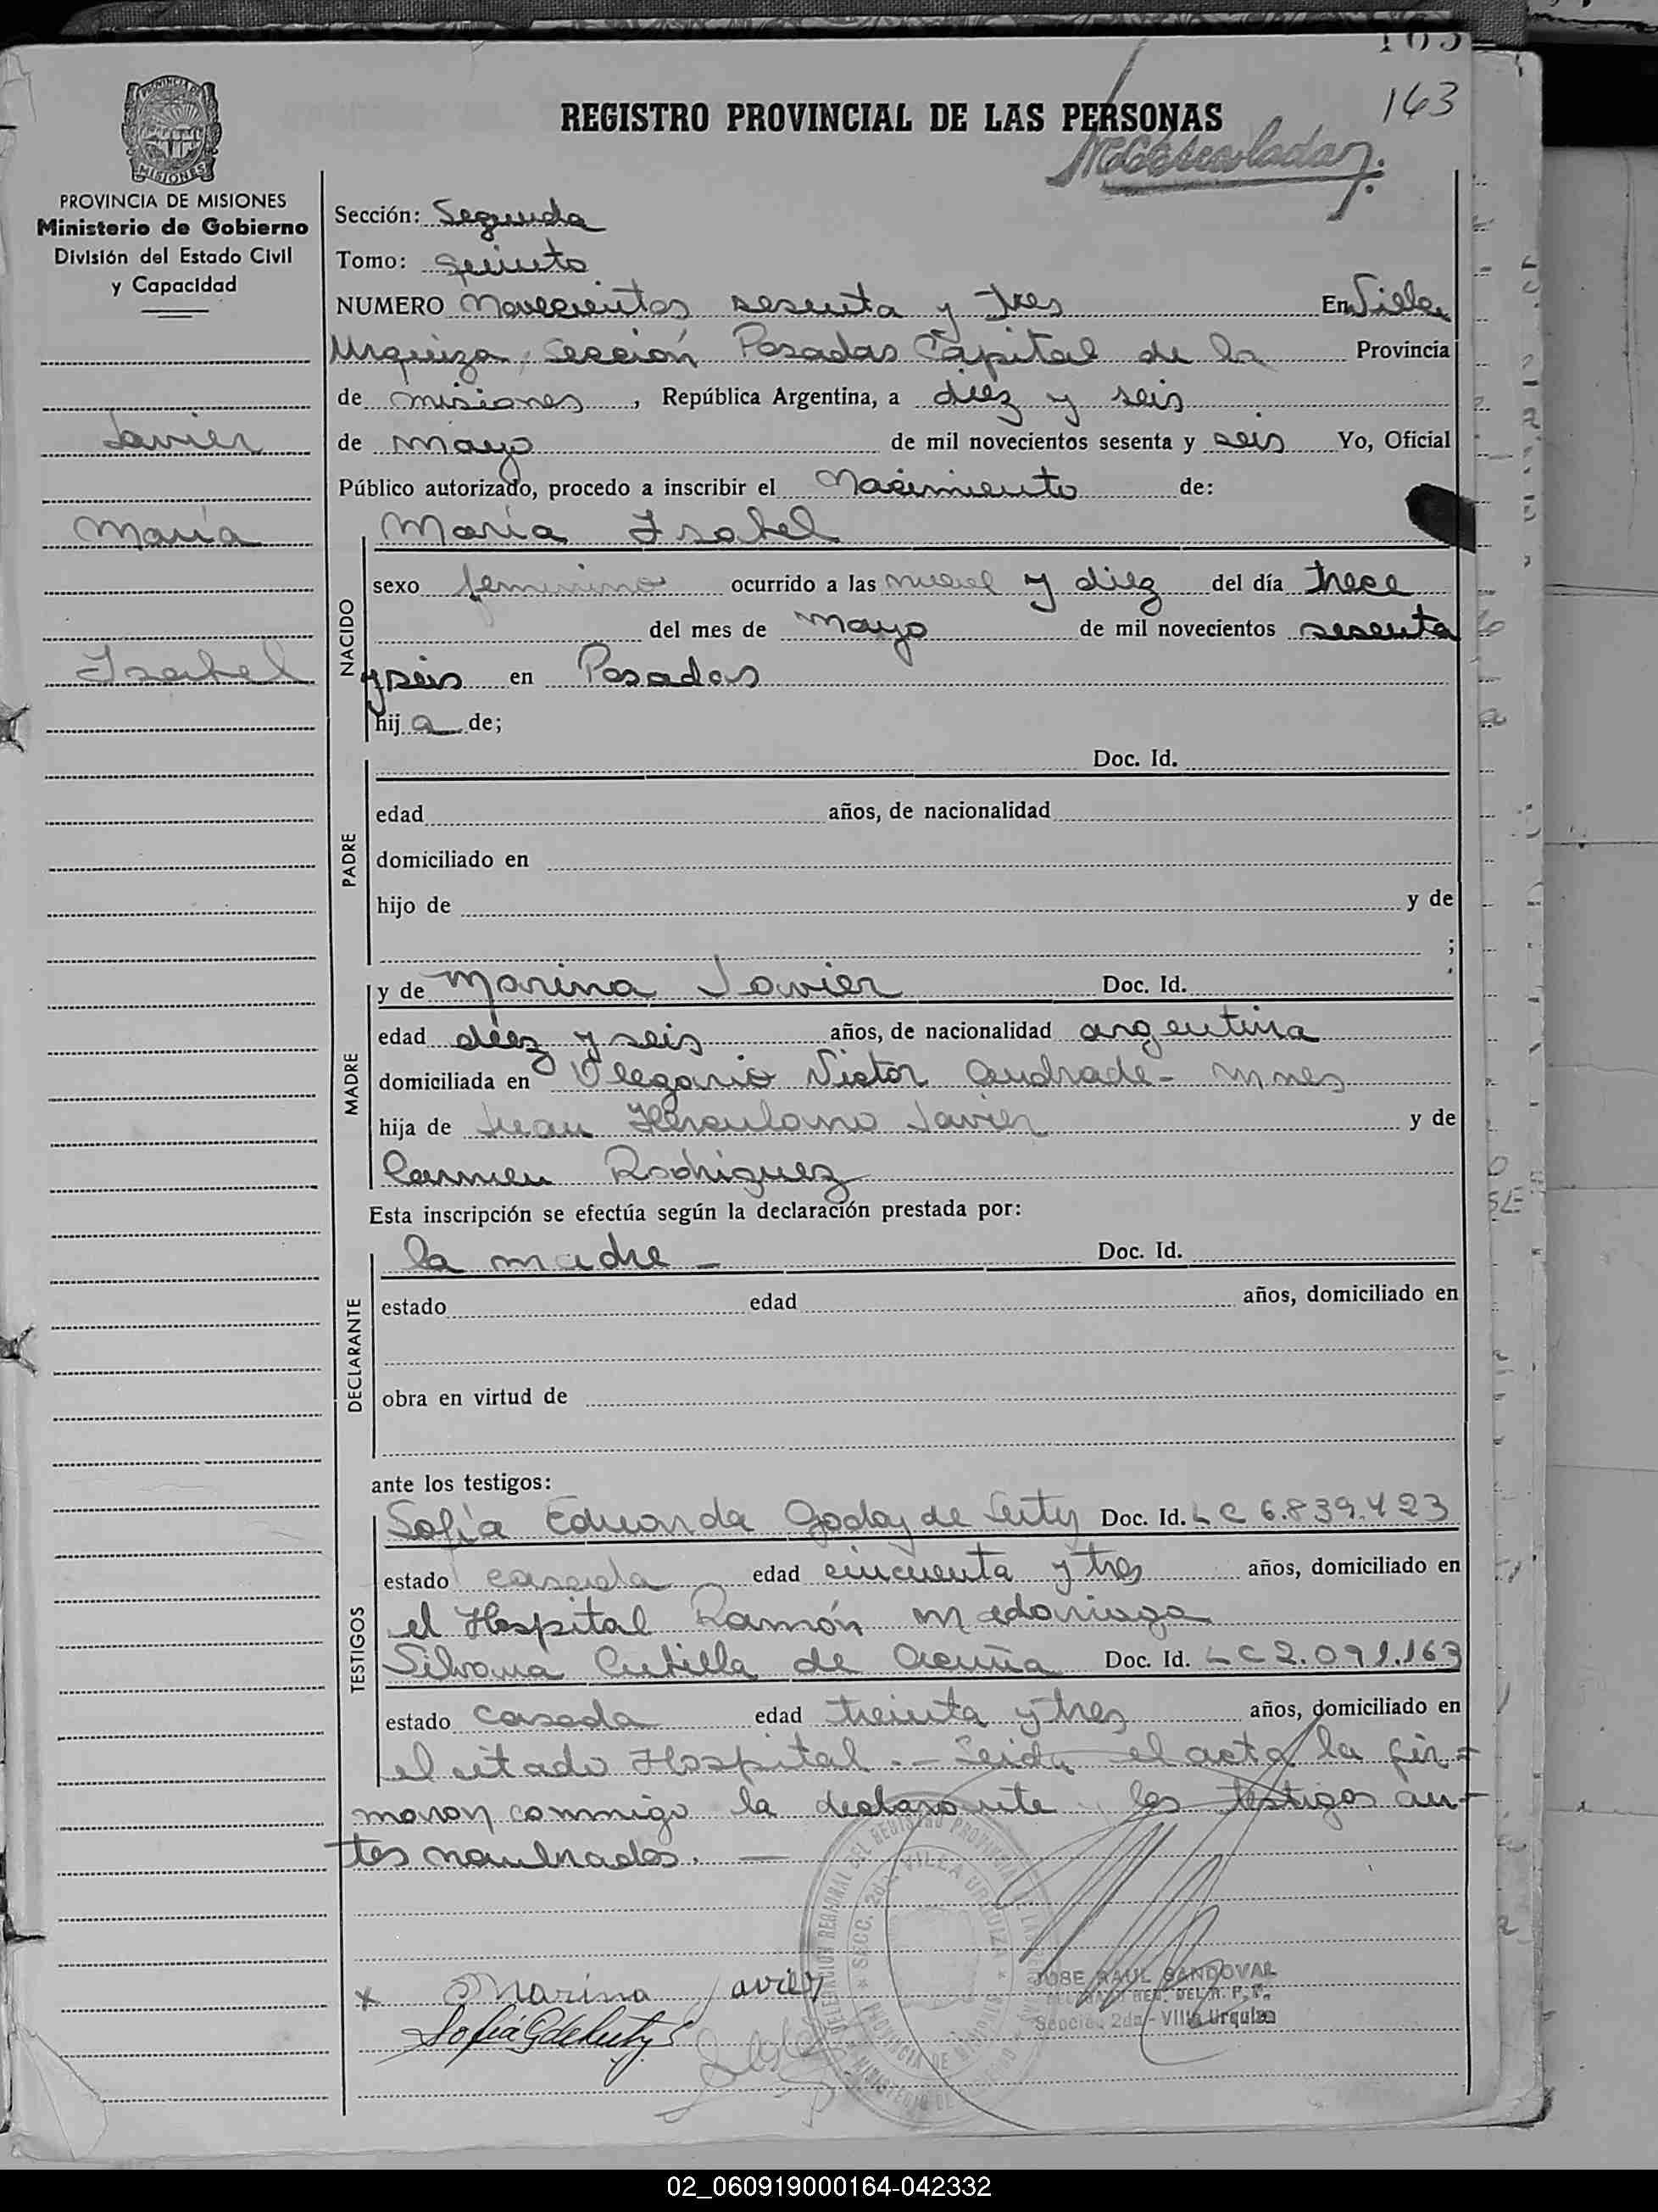 163
163
REGISTRO PROVINCIAL DE LAS PERSONAS
MISIONES
PROVINCIA DE MISIONES
Ministerio de Gobierno
División del Estado Civil
y Capacidad
Javier
María
Isabel
Sección: Segunda
Tomo: Quinto
NUMERO Novecientos sesenta y tres En Villa
Urquiza, Sección Posadas Capital de la Provincia
de misiones, República Argentina, a diez y seis
de mayo de mil novecientos sesenta y seis Yo, Oficial
Público autorizado, procedo a inscribir el Nacimiento de:
María Isabel
NACIDO
sexo femenino ocurrido a las nueve y diez del día trece
del mes de mayo de mil novecientos sesenta
y seis en Posadas
hija de;
PADRE
Doc. Id.
edad años, de nacionalidad
domiciliado en
hijo de y de
;
MADRE
y de Marina Javier Doc. Id.
edad diez y seis años, de nacionalidad argentina
domiciliada en Olegario Victor Andrade - Mnes
hija de Juan Herculano Javier y de
Carmen Rodriguez
Esta inscripción se efectúa según la declaración prestada por:
DECLARANTE
la madre - Doc. Id.
estado edad años, domiciliado en
obra en virtud de
ante los testigos:
TESTIGOS
Sofía Eduarda Godoy de Doc. Id. LC 6.839.423
estado casada edad cincuenta y tres años, domiciliado en
el Hospital Ramón Madariaga
Silvana de Acuña Doc. Id. LC 2.091.163
estado casada edad treinta y tres años, domiciliado en
el citado Hospital .- Leida el acta la fir=
maron conmigo la declarante, los testigos an-
tes nombrados. —
x Marina Javier
JOSE RAUL SANDOVAL
Sección 2da - Villa Urquiza
DELEGACION REGIONAL DEL REGISTRO PROVINCIAL DE LAS
SECC. 2da. VILLA URQUIZA
PROVINCIA DE MISIONES
02_060919000164-042332